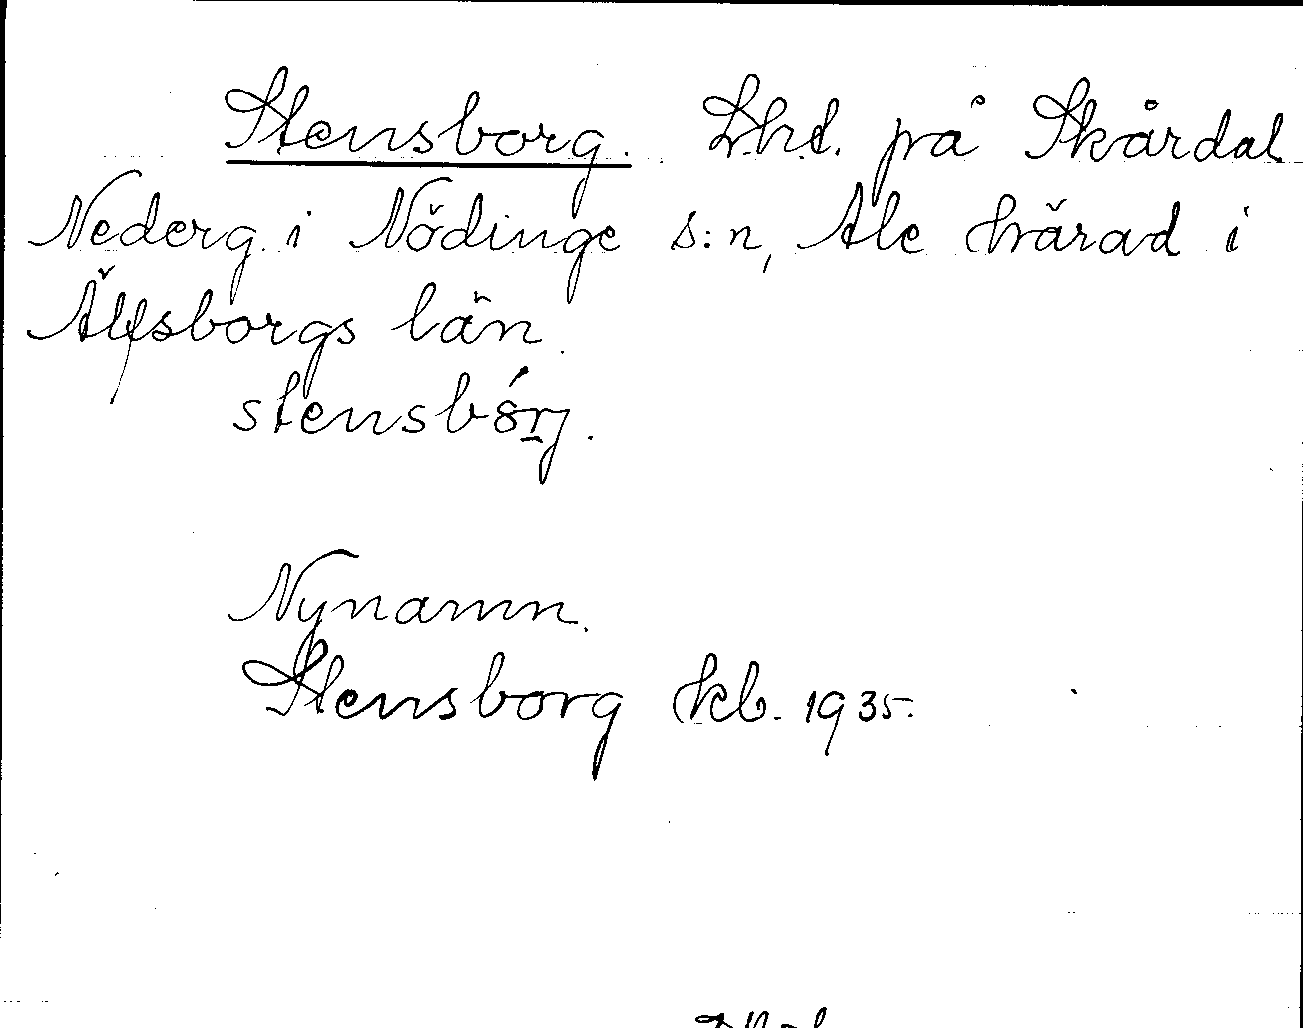 Stensborg. Lht. på Skårdal
Nederg. i Nödinge s:n, Ale härad i
Älfsborgs län.
stensbórj.
Nynamn.
Stensborg kb. 1935.